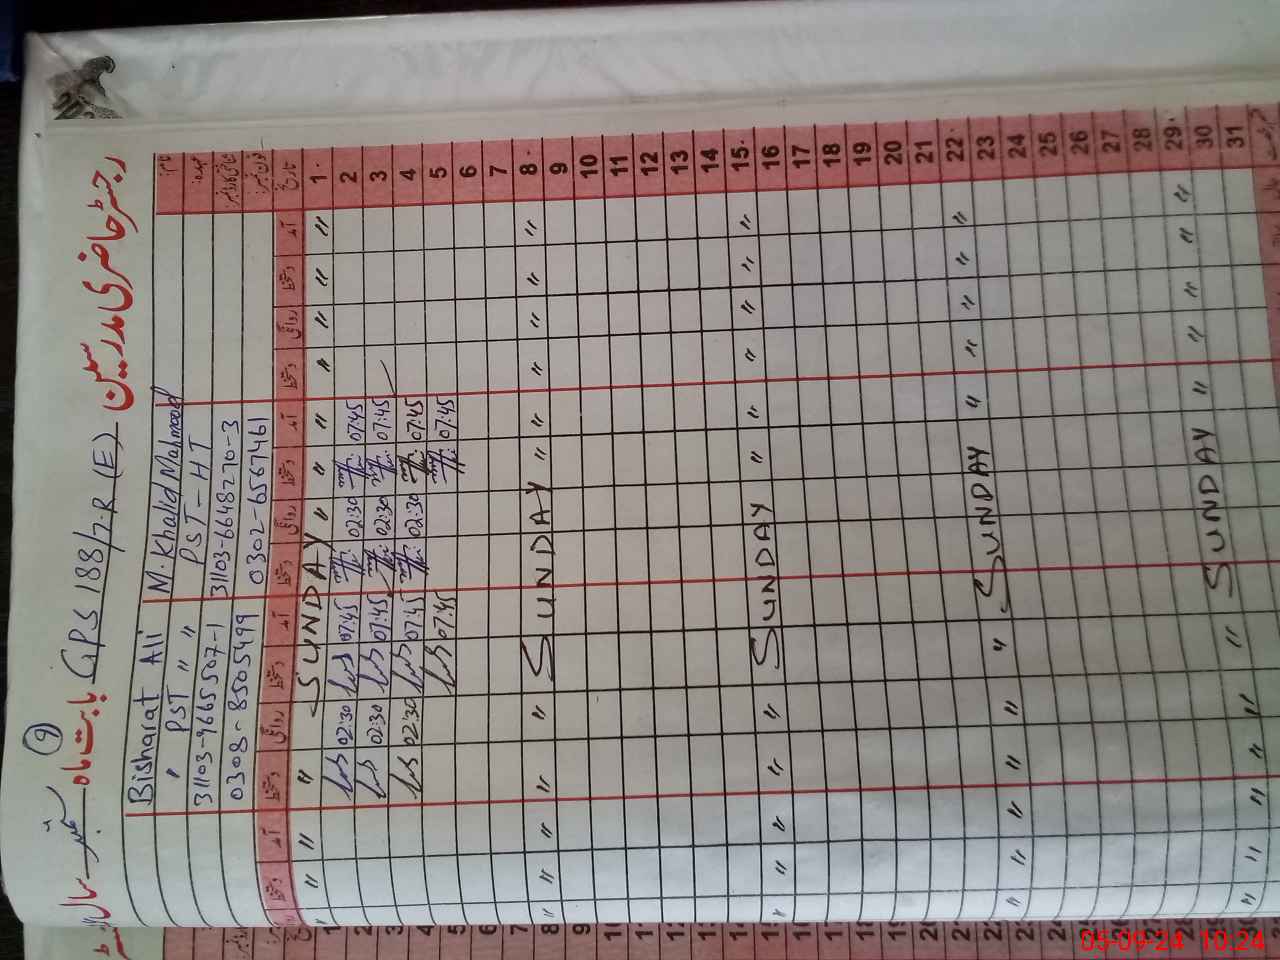 رجسٹر حاضری مدرسین سکول GPS 188/7.R (E) بابت ماہ ستمبر (9) سال
نام:
M. Khalid Mahmood
Bisharat Ali
عہدہ:
PST - HT
" PST " "
شناختی کارڈ نمبر:
31103-6648270-3
31103-9665507-1
فون نمبر:
0302-6567461
0308-8505499
تاریخ آمد دستخط روانگی دستخط آمد دستخط روانگی دستخط آمد دستخط روانگی دستخط آمد دستخط
1. " " " " " " " SUNDAY " " "
2 07:45 02:30 07:45 02:30
3 07:45 02:30 07:45 02:30
4 07:45 02:30 07:45 02:30
5 07:45 07:45
6
7
8. " " " " " " SUNDAY " " " " "
9
10
11
12
13
14
15. " " " " " " SUNDAY " " " " "
16
17
18
19
20
21
22. " " " " " SUNDAY " " " " " "
23
24
25
26
27
28
29. " " " " " SUNDAY " " " " " "
30
31
05-09-24 10:24